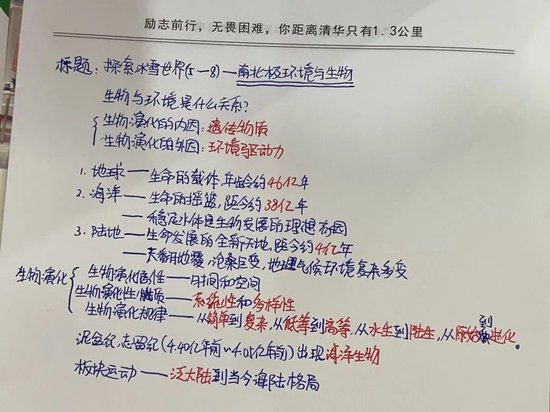 励志前行，无畏困难，你距离清华只有1.3公里
标题：探索冰雪世界(5-8)—南北极环境与生物
生物与环境是什么关系?
生物演化的内因：遗传物质
生物演化的外因：环境驱动力
1. 地球——生命的载体，年龄约46亿年
2. 海洋——生命的摇篮，距今约38亿年
——稳定水体是生物发展的理想家园
3. 陆地——生命发展的全新天地，距今约4亿年
——天翻地覆，沧桑巨变，地理气候环境复杂多变
生物演化
生物演化属性——时间和空间
生物演化性质——系统性和多样性
生物演化规律——从简单到复杂，从低等到高等，从水生到陆生，从原始到进化。
泥盆纪，志留纪(4.40亿年前~4.05亿年前)出现海洋生物
板块运动——泛大陆到当今海陆格局